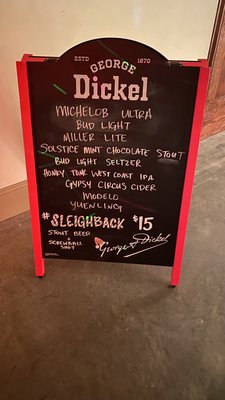 ESTD 1870
GEORGE
Dickel
MICHELOB ULTRA
BUD LIGHT
MILLER LITE
SOLSTICE MINT CHOCOLATE STOUT
BUD LIGHT SELTZER
HONEY TONK WEST COAST IPA
GYPSY CIRCUS CIDER
MODELO
YUENLING
#SLEIGHBACK $15
STOUT BEER
+
SCREWBALL
SHOT
George A. Dickel